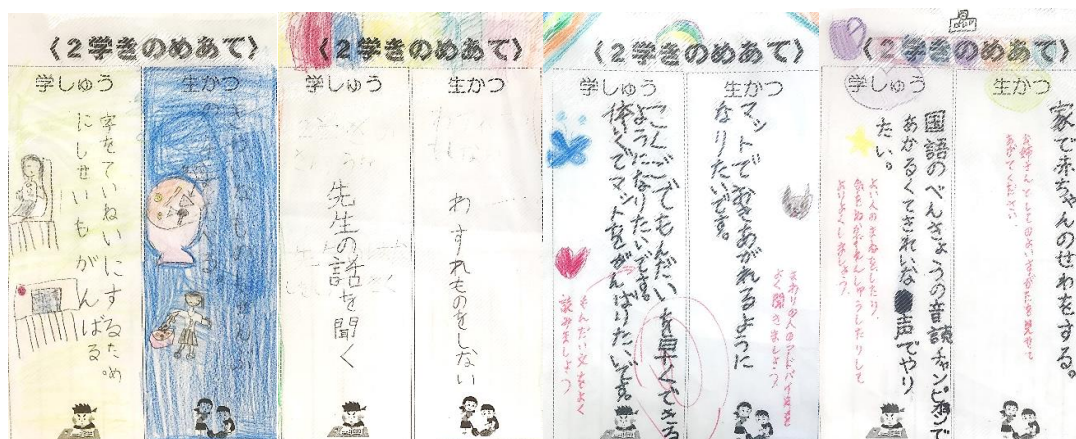 〈2学きのめあて〉
学しゅう
字をていねいにするため
にしせいもがんばる。
生かつ
〈2学きのめあて〉
学しゅう
先生の話を聞く
生かつ
わすれものをしない
〈2学きのめあて〉
学しゅう
こくごでもんだいを早くできる
ようになりたいです。
体いくでマットをがんばりたいです。
もんだい文をよく
読みましょう
生かつ
マットでおきあがれるように
なりたいです。
まわりの人のアドバイスを
よく聞きましょう。
〈2学きのめあて〉
学しゅう
国語のべんきょうの音読チャンピオンで
あかるくてきれいな声でやり
たい。
よい人のまねをしたり、
れんしゅうしたりして
よりよくしましょう。
生かつ
家で赤ちゃんのせわをする。
お姉さんとしてのよいすがたを見せて
あげてください。